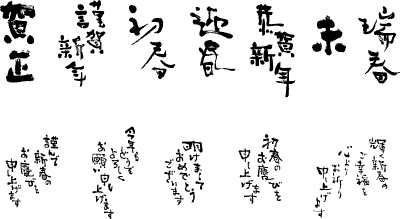 賀正
謹賀
新年
初春
迎春
恭賀
新年
未
瑞春
謹んで
新春の
お慶びを
申し上げます
今年も
どうぞ
よろしく
お願い申し上げます
明けまして
おめでとう
ございます
初春の
お慶びを
申し上げます
輝く新春の
ご幸福を
心より
お祈り
申し上げます